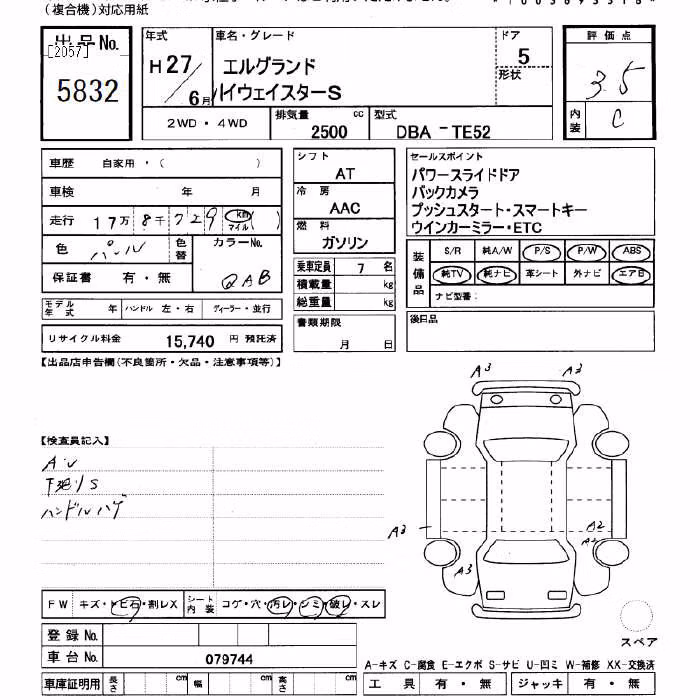 (複合機)対応用紙
出品No.
[2057]
5832
年式
H27
6月
車名・グレード
エルグランド
ハイウェイスターS
ドア
5
形状
評価点
3.5
内装
C
2WD・4WD
排気量
cc
2500
型式
DBA -TE52
車歴 自家用・( )
車検 年 月
走行 17万8千729 km マイル ( )
色 パール
色替
カラーNo.
QAB
保証書 有・無
モデル年式 年
ハンドル 左・右
ディーラー・並行
リサイクル料金 15,740 円 預託済
シフト
AT
冷房
AAC
燃料
ガソリン
乗車定員 7 名
積載量 kg
総重量 kg
書類期限
月 日
セールスポイント
パワースライドドア
バックカメラ
プッシュスタート・スマートキー
ウインカーミラー・ETC
装備品
S/R 純A/W P/S P/W ABS
純TV 純ナビ 革シート 外ナビ エアB
ナビ型番:
後日品
【出品店申告欄(不良箇所・欠品・注意事項等)】
【検査員記入】
A・U
下廻りS
ハンドルハゲ
A3 A3
A3
A2
A2
A3
FW キズ・トビ石・割レX
シート内装 コゲ・穴・汚レ・シミ・破レ・スレ
登録No.
車台No. 079744
車庫証明用 長さ cm 幅 cm 高さ cm
スペア
A-キズ C-腐食 E-エクボ S-サビ U-凹ミ W-補修 XX-交換済
工具 有・無 ジャッキ 有・無